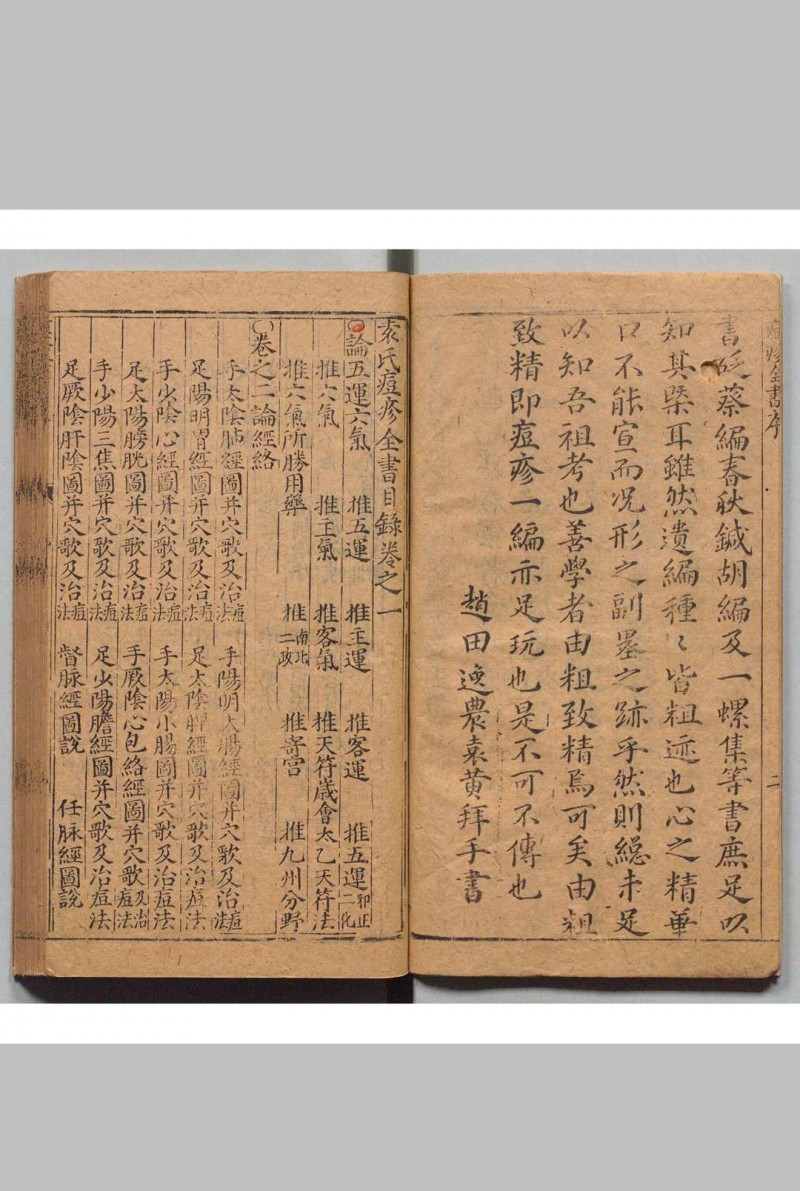 痘疹全書序
書砭蔡編春秋鍼胡編及一螺集等書庶足以
知其槩耳雖然遺編種〻皆粗迹也心之精華
口不能宣而况形之副墨之跡乎然則緫未足
以知吾祖考也善學者由粗致精焉可矣由粗
致精即痘疹一編亦足玩也是不可不傳也
趙田逸農袁黄拜手書
二
袁氏痘疹全書目錄卷之一
論五運六氣 推五運 推主運 推客運 推五運邪正二化
推六氣 推主氣 推客氣 推天符歲會太乙天符法
推六氣所勝用藥 推南北二政 推寄宫 推九州分野
卷之二論經絡
手太陰肺經圖并穴歌及治痘法 手陽明大腸經圖并穴歌及治痘法
足陽明胃經圖并穴歌及治痘法 足太陰脾經圖并穴歌及治痘法
手少陰心經圖并穴歌及治痘法 手太陽小腸圖并穴歌及治痘法
足太陽膀胱圖并穴歌及治痘法 手厥陰心包絡經圖并穴歌及治痘法
手少陽三焦圖并穴歌及治痘法 足少陽膽經圖并穴歌及治痘法
足厥陰肝陰圖并穴歌及治痘法 督脉經圖説 任脉經圖説